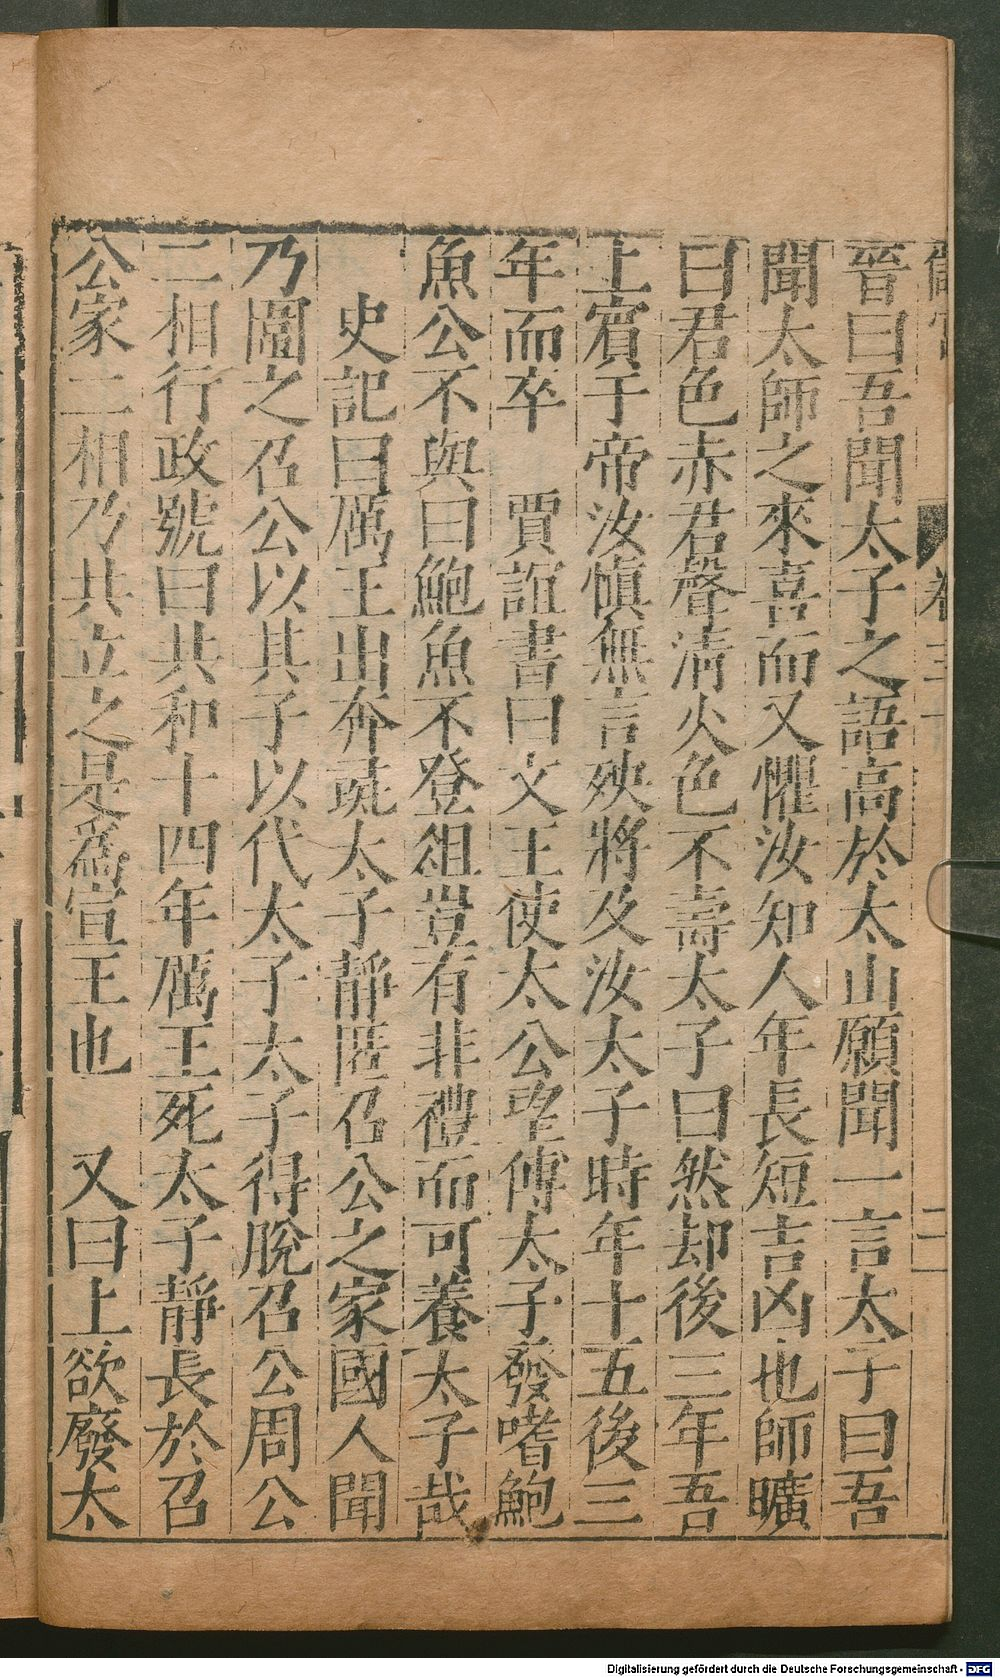 儲宮
卷三十
二
晉曰吾聞太子之語高於太山願聞一言太子曰吾
聞太師之來喜而又懼汝知人年長短吉凶也師曠
曰君色赤君聲清火色不壽太子曰然却後三年吾
上賓于帝汝慎無言殃將及汝太子時年十五後三
年而卒　賈誼書曰文王使太公望傅太子發嗜鮑
魚公不與曰鮑魚不登俎豈有非禮而可養太子哉
史記曰厲王出奔彘太子靜匿召公之家國人聞
乃圍之召公以其子以代太子太子得脫召公周公
二相行政號曰共和十四年厲王死太子靜長於召
公家二相乃共立之是爲宣王也　又曰上欲廢太
Digitalisierung gefördert durch die Deutsche Forschungsgemeinschaft - DFG